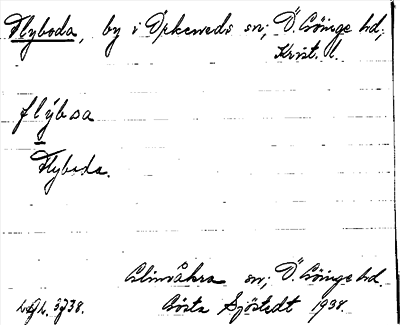 Flyboda, by i Örkeneds sn; Ö. Göinge hd;
Krist. l.
flýboa
Flyboda.
Glimåkra sn; Ö. Göinge hd
Gösta Sjöstedt 1938.